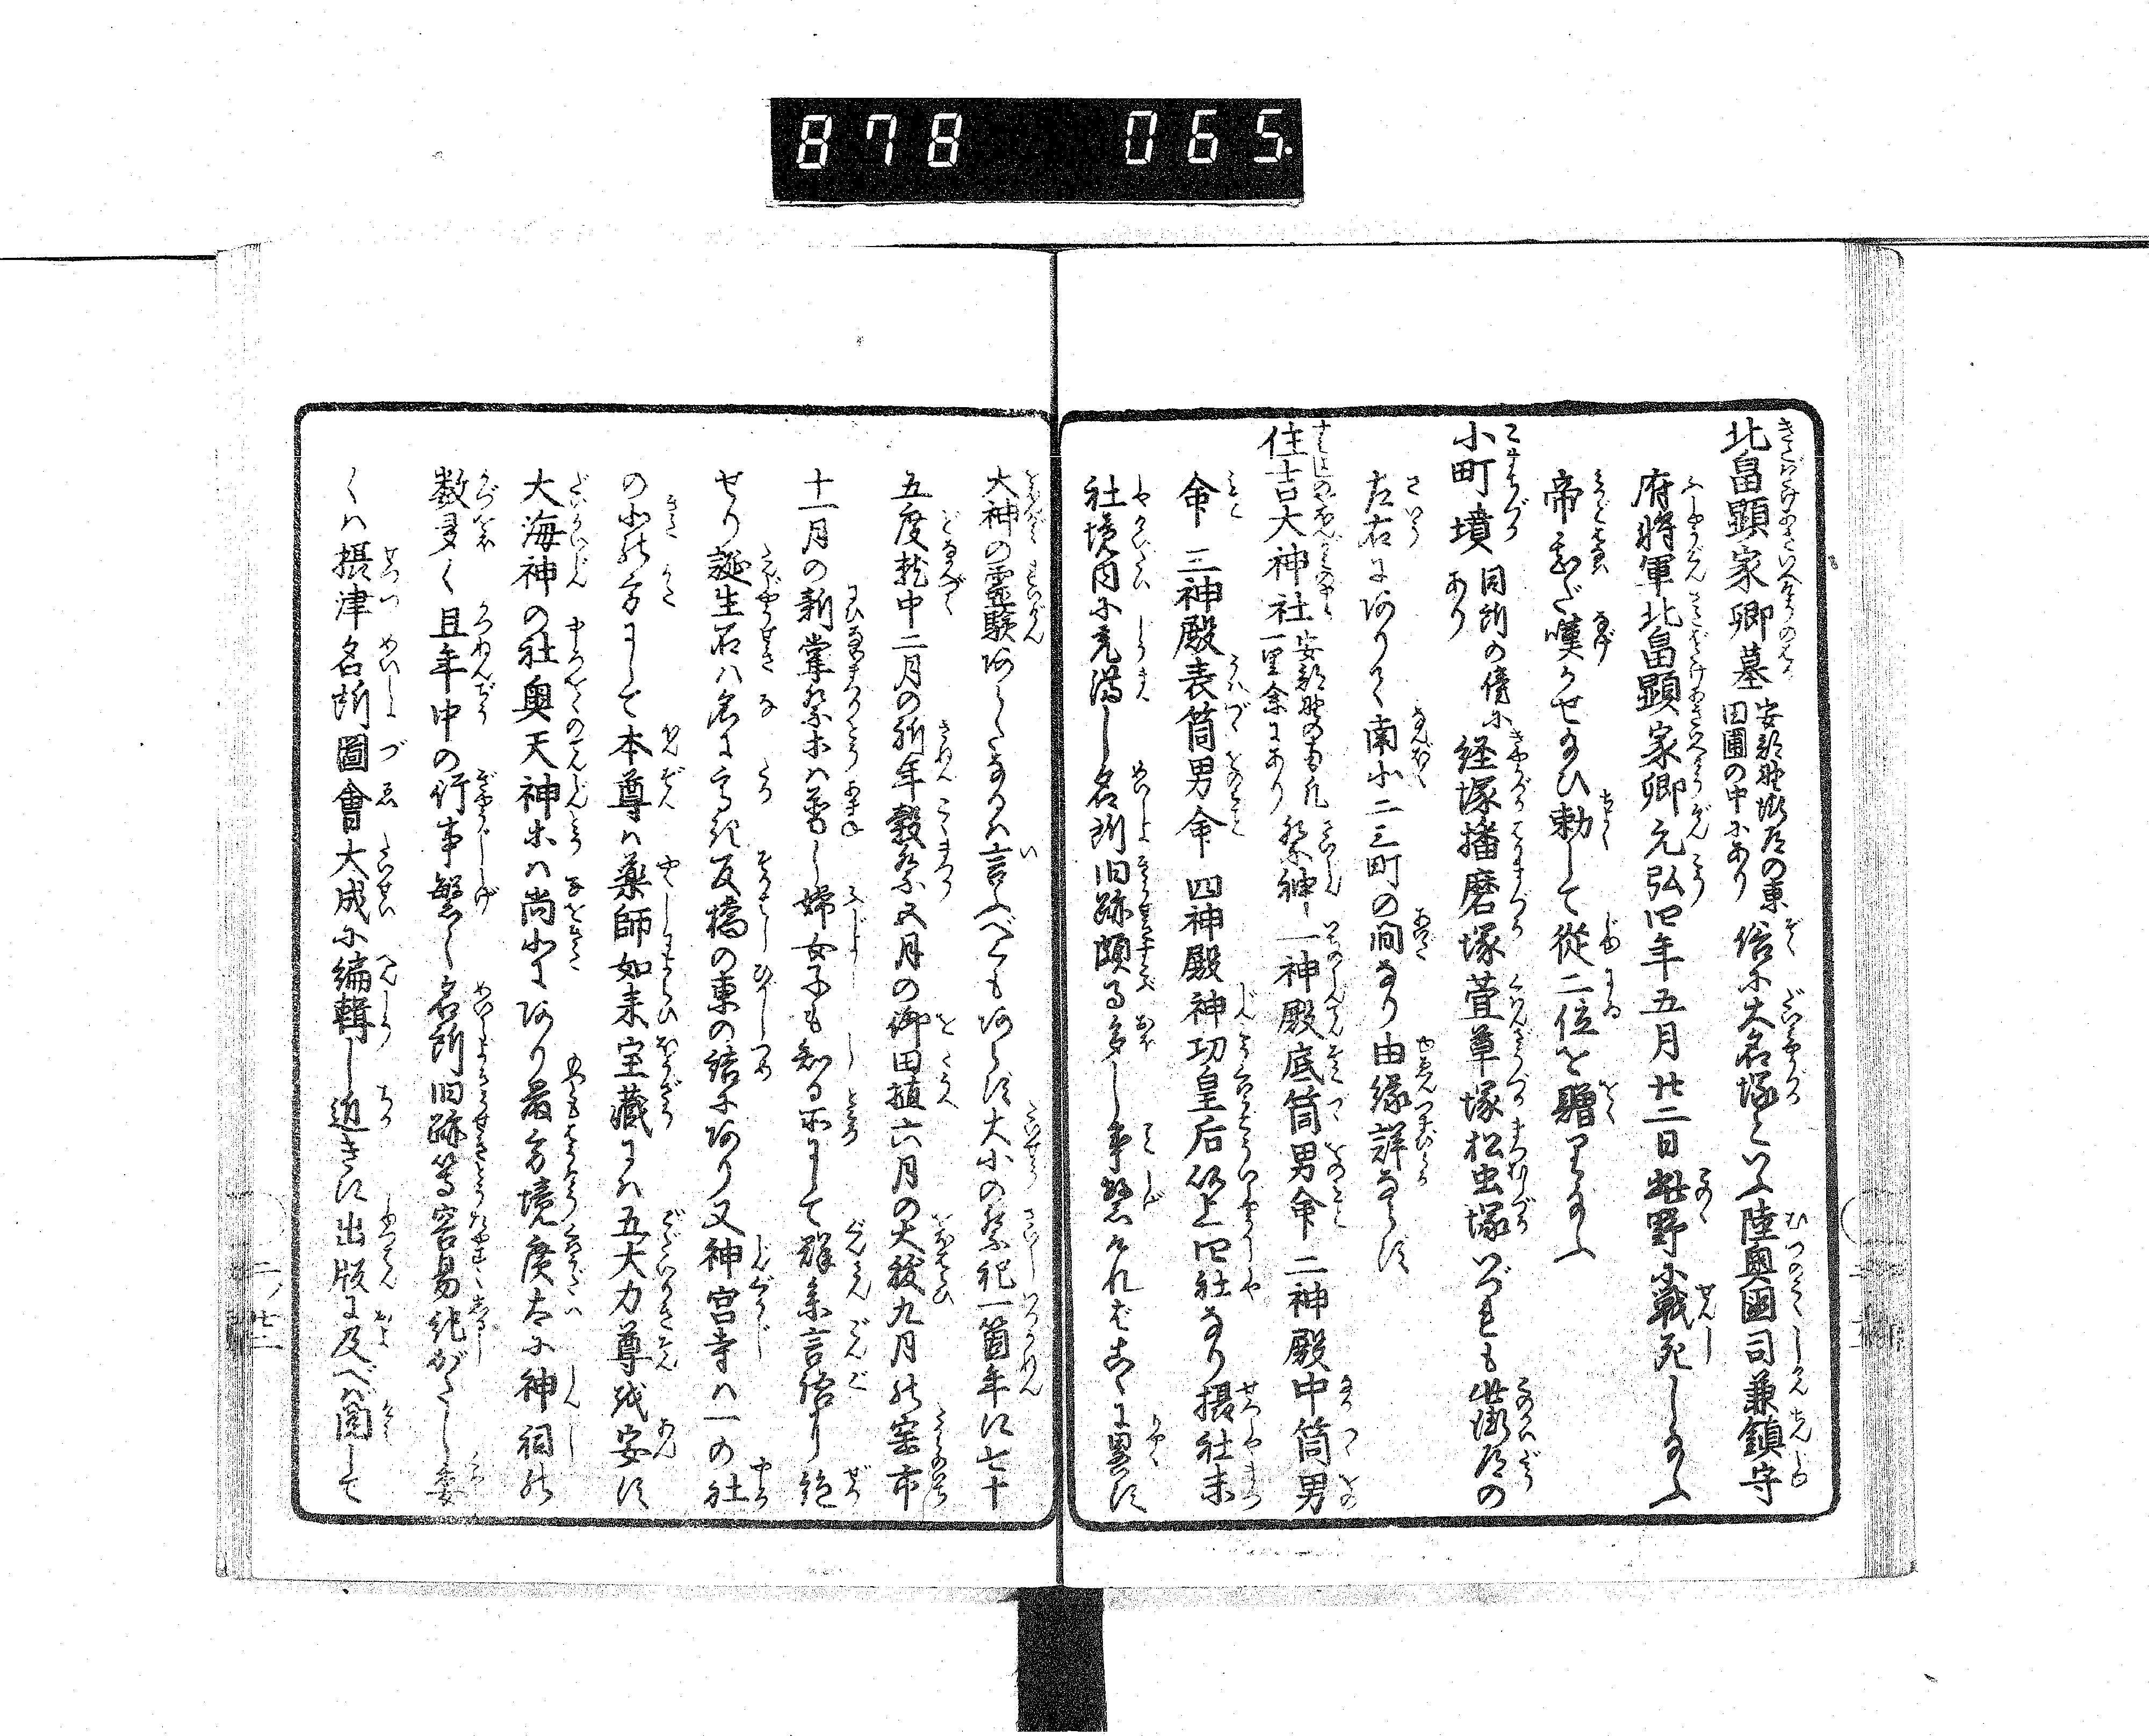 878 065.
北畠顕家卿墓 安部野街道の東田圃の中にあり 俗に大名塚といふ陸奥國司兼鎮守
府将軍北畠顕家卿元弘四年五月廿二日此野に戦死し給ふ
帝甚だ嘆かせ給ひ勅して従二位を贈り給ふ
小町墳 同所の傍にあり 経塚播磨塚萱草塚松虫塚いづれも此街道の
左右にありて南北二三町の間なり由縁詳ならず
住吉大神社 安部野の南凡一里余にあり 祭神一神殿底筒男命二神殿中筒男
命三神殿表筒男命四神殿神功皇后以上四社なり摂社末
社境内に充満し名所旧跡頗る多し事繁ければこゝに畧す
大神の霊験あらたなるは言ふべくもあらず大小の祭祀一箇年に七十
五度就中二月の祈年穀祭五月の御田植六月の大祓九月の宝市
十一月の新嘗祭ホは普し婦女子も知る所にして群参言語り絶
せり誕生石は名に高き反橋の東の詰にあり又神宮寺は一の社
の北の方にして本尊は薬師如来宝蔵には五大力尊を安ず
大海神の社奥天神ホは尚北にあり最も方境廣大に神祠の
数多く且年中の行事繁く名所旧跡等容易記がたし委
くは摂津名所圖會大成に編輯し近きに出版に及べば閲して
二ノ廿二